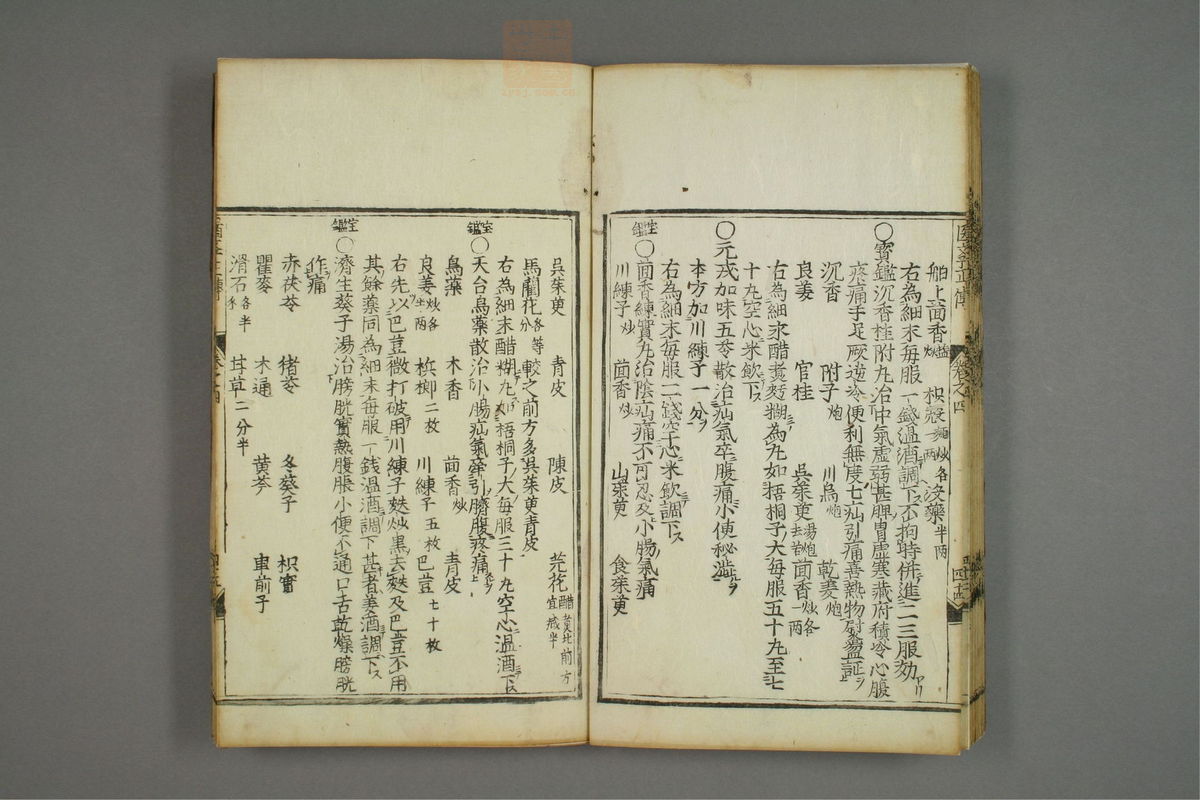 舶上茴香鹽炒 枳殼麵炒各一兩 沒藥半兩
右為細末每服一錢温酒調下不拘時併進二三服効
〇寳鑑沉香桂附丸治中氣虛弱甚脾胃虛寒藏府積冷心腹
疼痛手足厥逆冷便利無度七疝引痛喜熱物熨盪証
沉香 附子炮 川烏炮 乾姜炮
良姜 官桂 吳茱萸湯炮去苦 茴香炒各一兩
右為細末醋煑麪糊為丸如梧桐子大每服五十丸至七
十丸空心米飲下
〇元戎加味五苓散治疝氣卒腹痛小便秘澁
本方加川練子一分
右為細末每服二錢空心米飲調下
宝鑑〇茴香練實丸治陰疝痛不可忍及小腸氣痛
川練子炒 茴香炒 山茱萸 食茱萸
吳茱萸 青皮 陳皮 芫花醋煑此前方宜减半
馬藺花各等分 較之前方多吳茱萸青皮
右為細末醋糊丸如梧桐子大每服三十丸空心温酒下
宝鑑〇天台烏藥散治小腸疝氣牽引臍腹疼痛
烏藥 木香 茴香炒 青皮
良姜炒各半兩 梹榔二枚 川練子五枚 巴豆七十枚
右先以巴豆微打破用川練子麩炒黒去麩及巴豆不用
其餘藥同為細末每服一錢温酒調下甚者姜酒調下
宝鑑〇濟生葵子湯治膀胱實熱腹脹小便不通口舌乾燥膀胱
作痛
赤茯苓 猪苓 冬葵子 枳實
瞿麥 木通 黄芩 車前子
滑石各半 甘草二分半